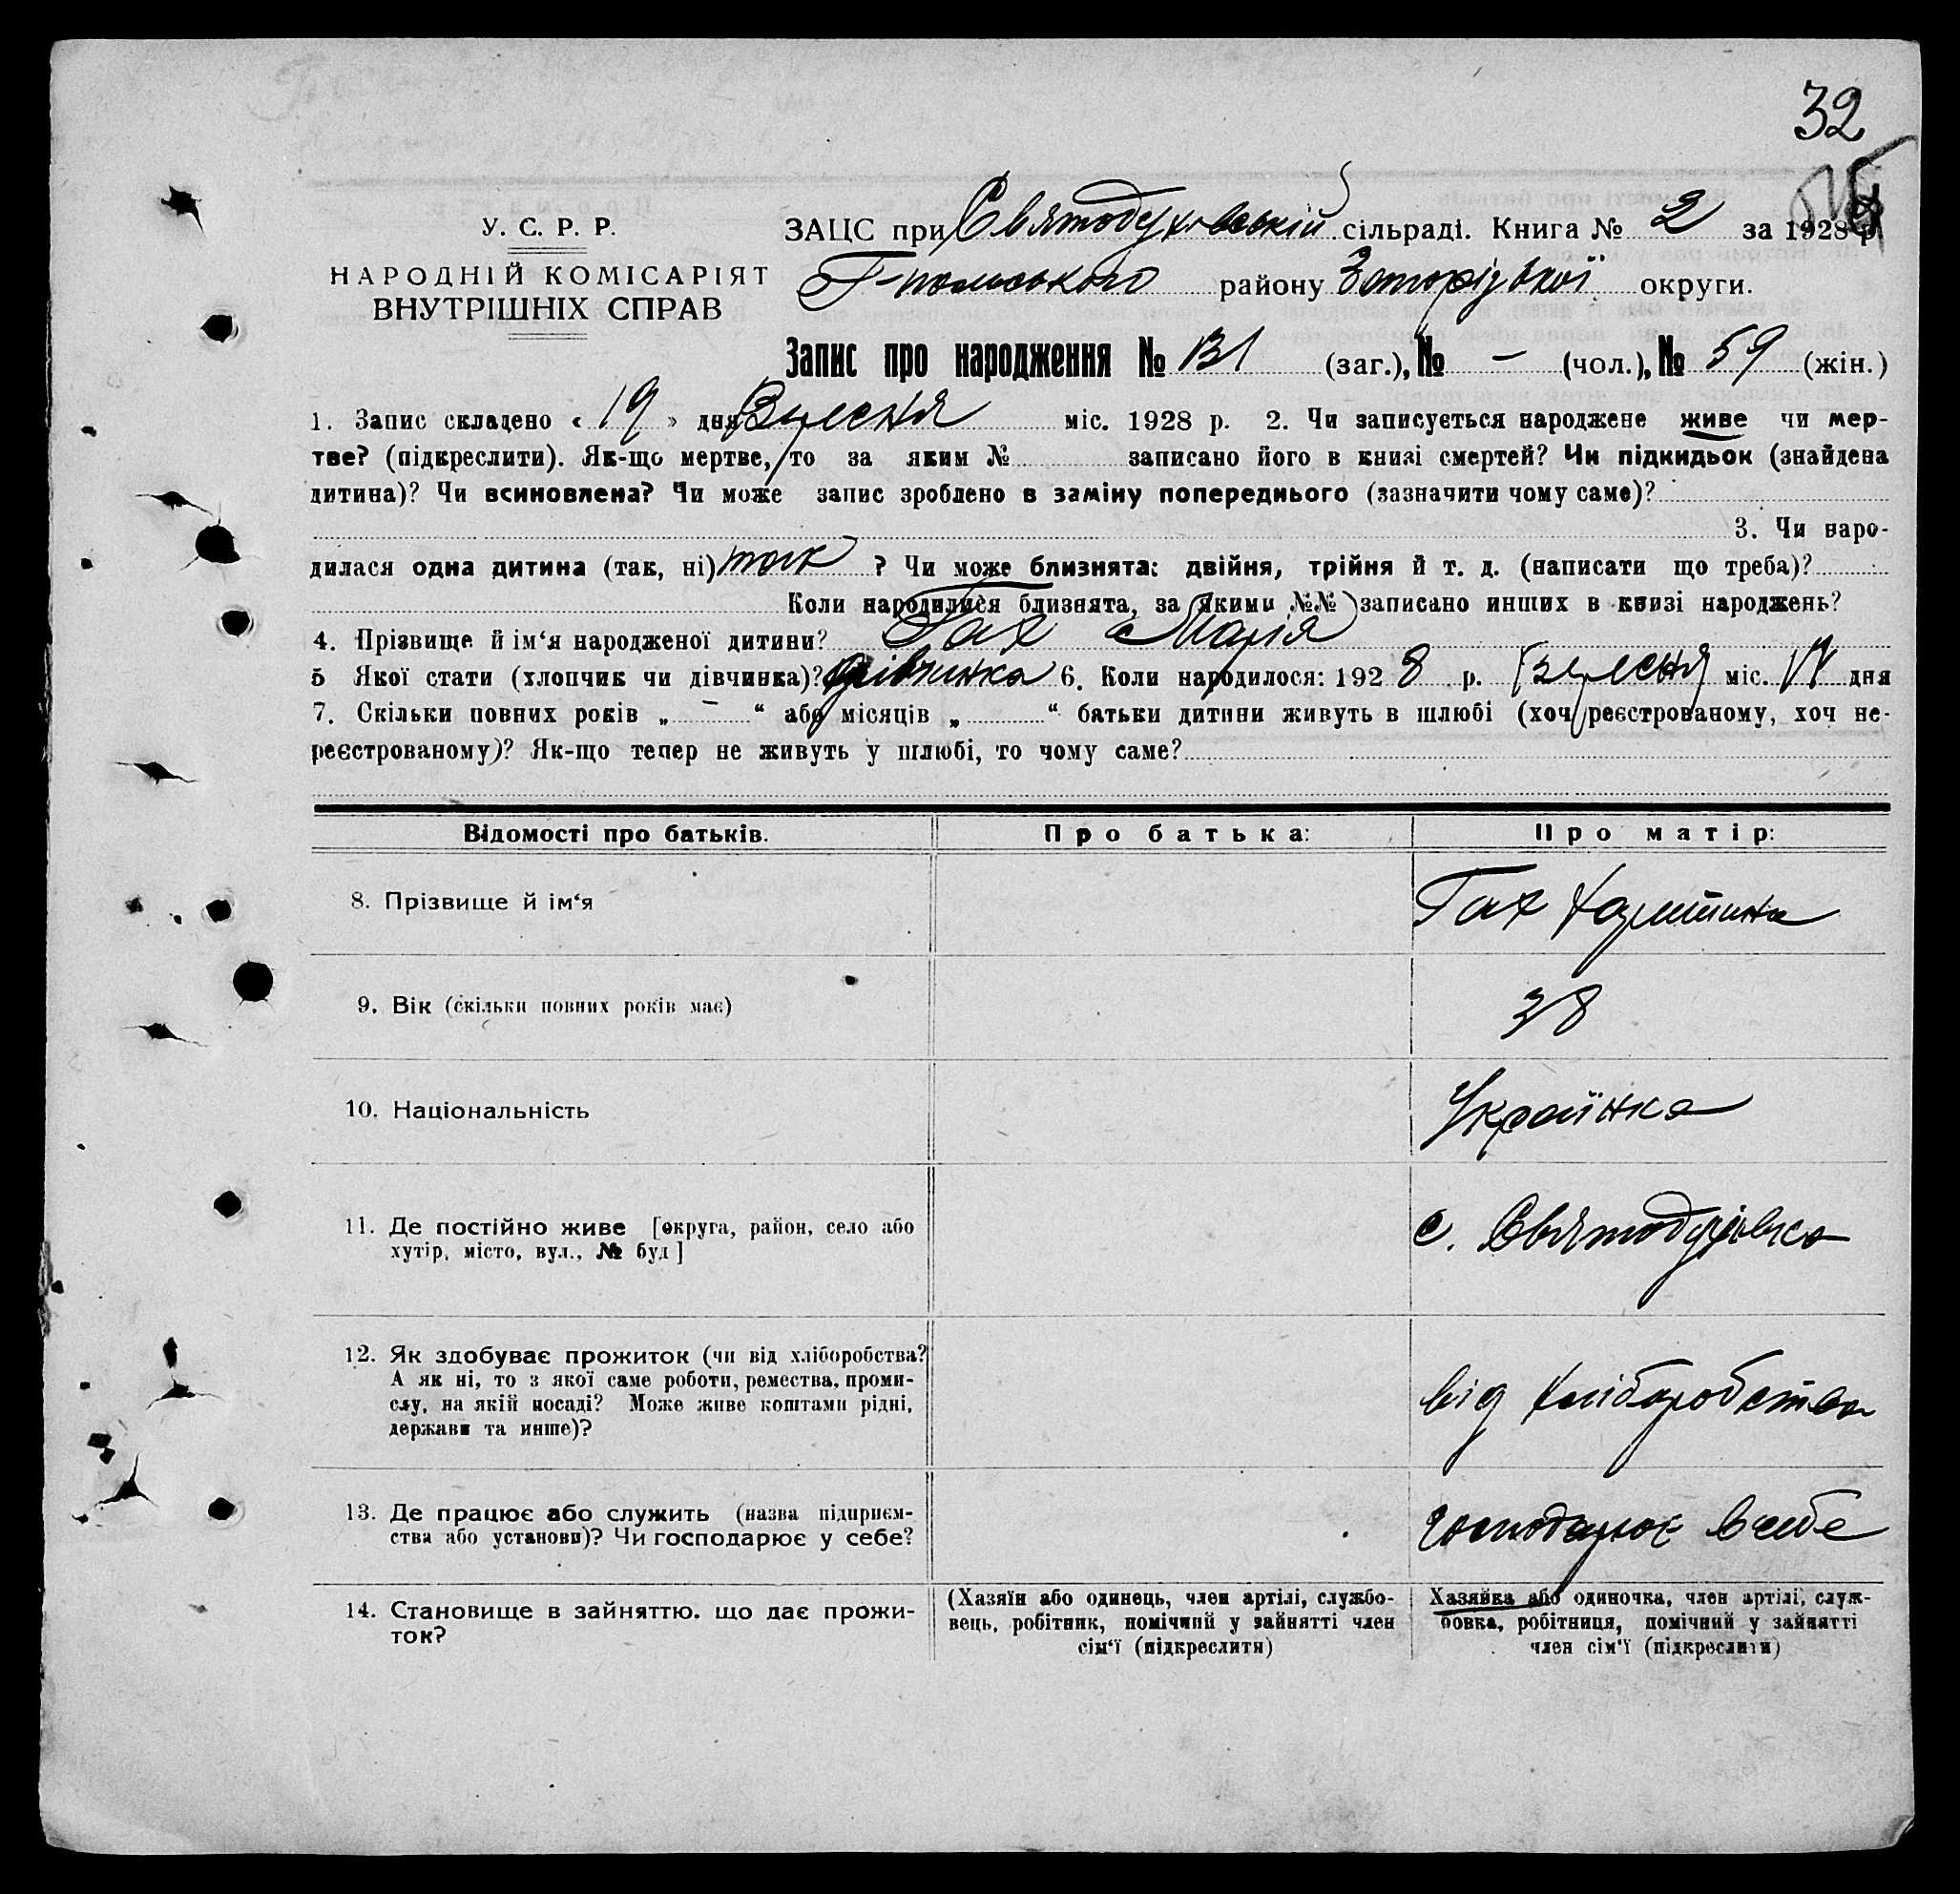 32
У. С. Р. Р.
НАРОДНІЙ КОМІСАРІЯТ
ВНУТРІШНІХ СПРАВ
ЗАЦС при Святодухівській сільраді. Книга № 2 за 1928 р.
Г-польського району Запорізької округи.
Запис про народження № 131 (заг.), № — (чол.), № 59 (жін.)
1. Запис складено « 19 » дня Вересня міс. 1928 р. 2. Чи записується народжене живе чи мер-
тве? (підкреслити). Як-що мертве, то за яким № записано його в книзі смертей? Чи підкидьок (знайдена
дитина)? Чи всиновлена? Чи може запис зроблено в заміну попереднього (зазначити чому саме)?
3. Чи наро-
дилася одна дитина (так, ні) так ? Чи може близнята: двійня, трійня й т. д. (написати що треба)?
Коли народилися близнята, за якими №№ записано инших в книзі народжень?
4. Прізвище й ім‘я народженої дитини? Гах Марія
5 Якої стати (хлопчик чи дівчинка)? дівчинка 6. Коли народилося: 1928 р. Вересня міс. 17 дня
7. Скільки повних років „ — “ або місяців „ “ батьки дитини живуть в шлюбі (хоч реєстрованому, хоч не-
реєстрованому)? Як-що тепер не живуть у шлюбі, то чому саме?
Відомості про батьків.
Про батька:
Про матір:
8. Прізвище й ім‘я
Гах Харитина
9. Вік (скільки повних років має)
38
10. Національність
Українка
11. Де постійно живе [округа, район, село або
хутір, місто, вул., № буд]
с. Святодухівка
12. Як здобуває прожиток (чи від хліборобства?
А як ні, то з якої саме роботи, ремества, проми-
слу, на якій посаді? Може живе коштами рідні,
держави та инше)?
від хліборобства
13. Де працює або служить (назва підприєм-
ства або установи)? Чи господарює у себе?
господарює в себе
14. Становище в зайняттю. що дає прожи-
ток?
(Хазяїн або одинець, член артілі, службо-
вець, робітник, помічний у зайнятті член
сім‘ї (підкреслити)
Хазяйка або одиночка, член артілі, служ-
бовка, робітниця, помічний у зайнятті
член сім‘ї (підкреслити)